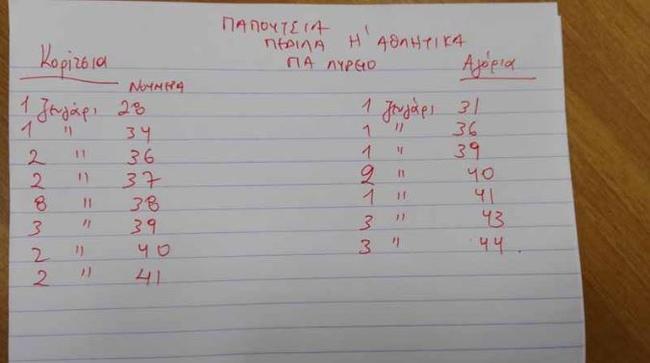 ΠΑΠΟΥΤΣΙΑ
ΠΕΔΙΛΑ Η' ΑΘΛΗΤΙΚΑ
ΓΙΑ ΛΥΚΕΙΟ
Κορίτσια
ΝΟΥΜΕΡΑ
1 Ζευγάρι 28
1 " 34
2 " 36
2 " 37
8 " 38
3 " 39
2 " 40
2 " 41
Αγόρια
1 Ζευγάρι 31
1 " 36
1 " 39
2 " 40
1 " 41
3 " 43
3 " 44